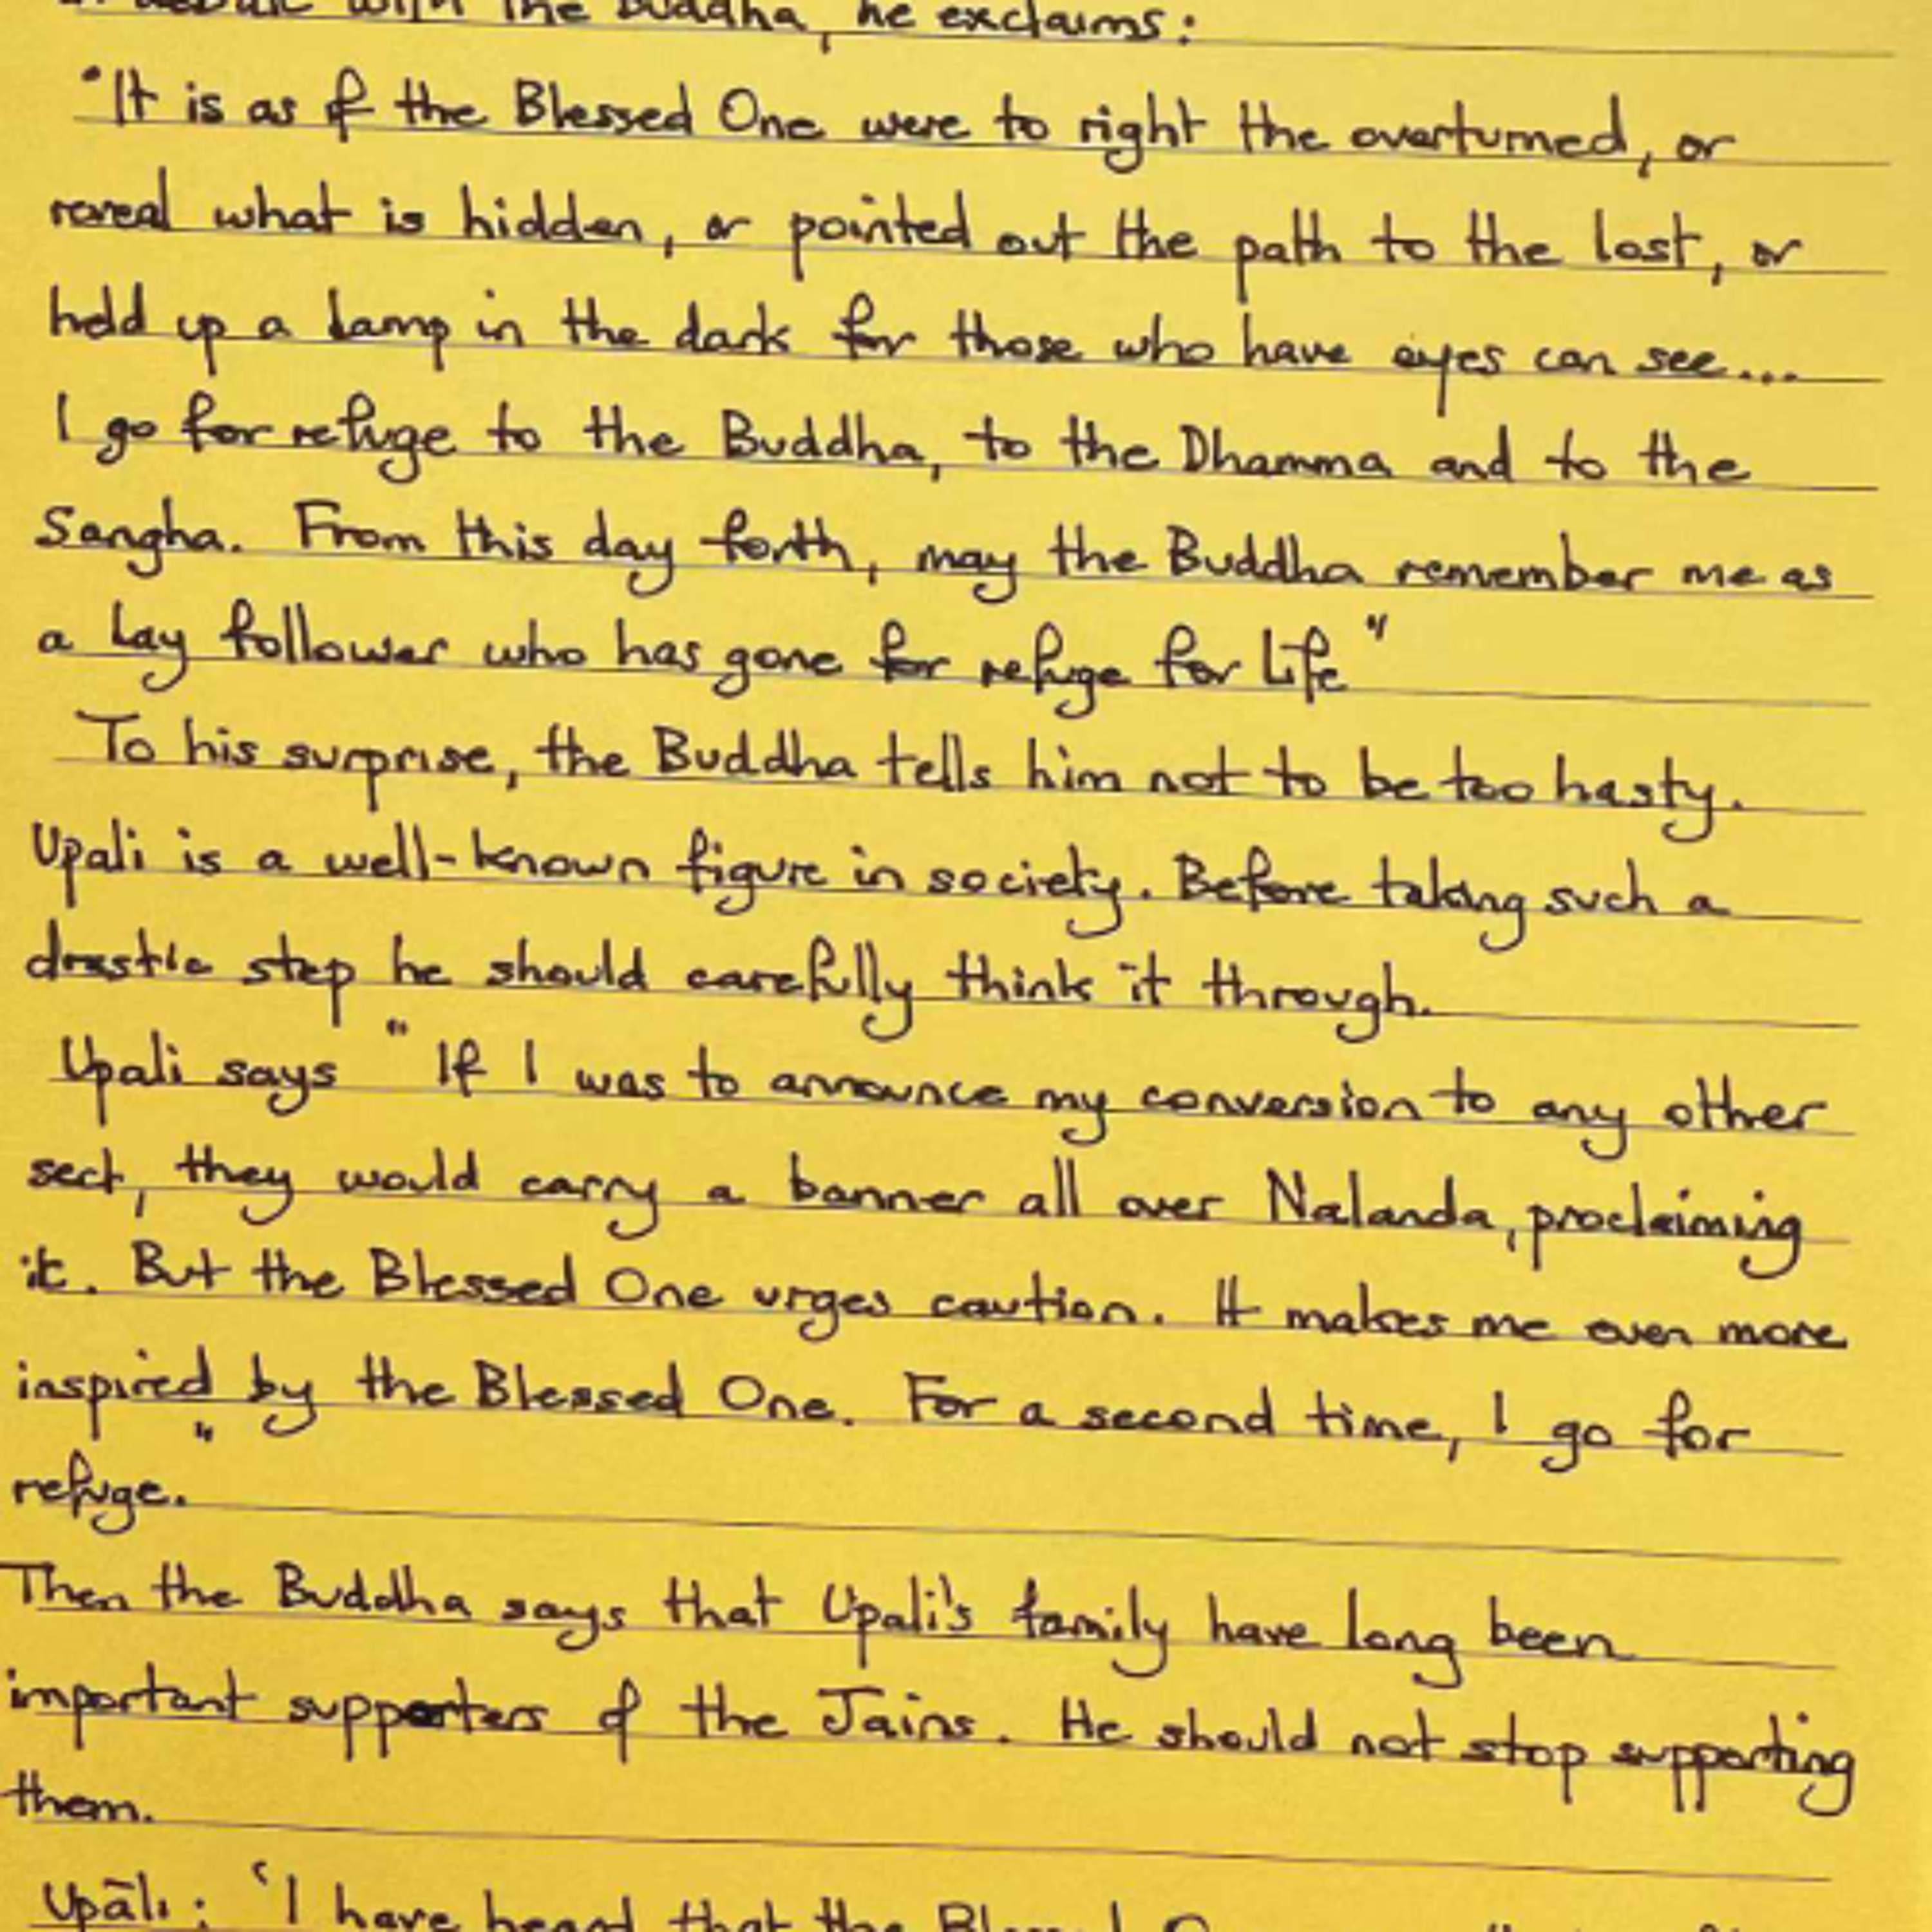 debate with the Buddha, he exclaims:
"It is as if the Blessed One were to right the overturned, or
reveal what is hidden, or pointed out the path to the lost, or
held up a lamp in the dark for those who have eyes can see...
I go for refuge to the Buddha, to the Dhamma and to the
Sangha. From this day forth, may the Buddha remember me as
a lay follower who has gone for refuge for life"
To his surprise, the Buddha tells him not to be too hasty.
Upali is a well-known figure in society. Before taking such a
drastic step he should carefully think it through.
Upali says "If I was to announce my conversion to any other
sect, they would carry a banner all over Nalanda, proclaiming
it. But the Blessed One urges caution. It makes me even more
inspired by the Blessed One. For a second time, I go for
refuge."
Then the Buddha says that Upali's family have long been
important supporters of the Jains. He should not stop supporting
them.
Upāli: 'I have heard that the Blessed